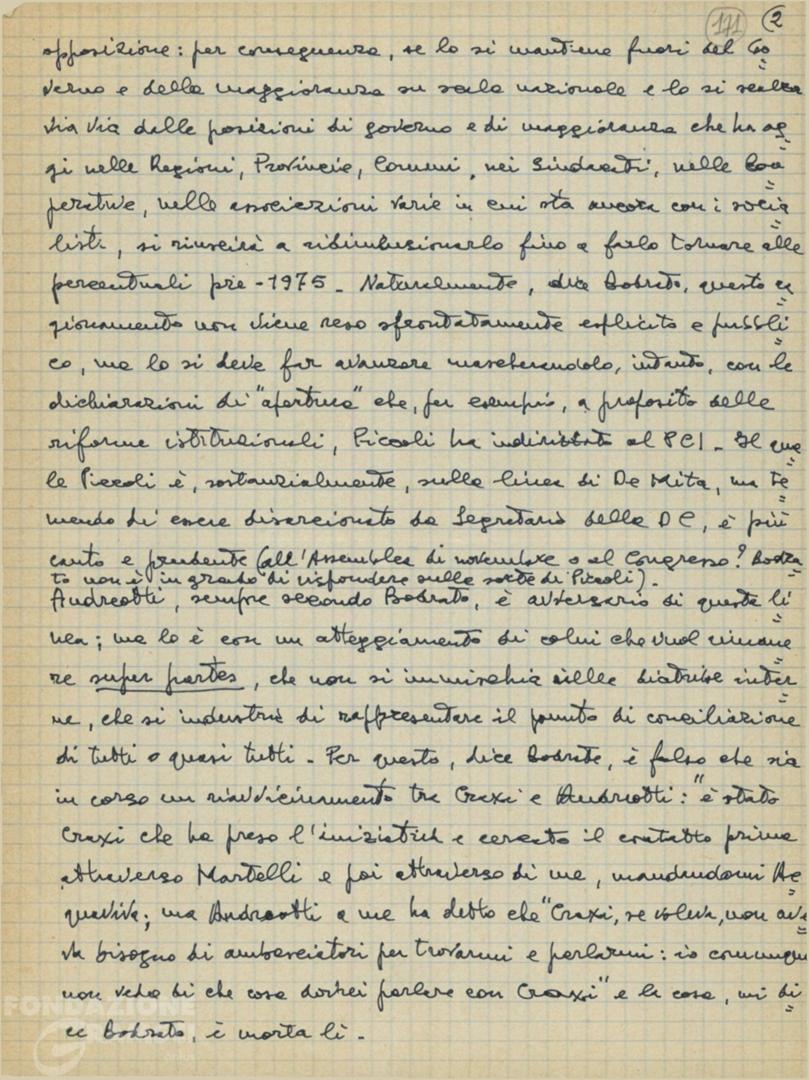 171 2
opposizione: per conseguenza, se lo si mantiene fuori del Go=
verno e della maggioranza su scala nazionale e lo si scalza
via via dalle posizioni di governo e di maggioranza che ha og=
gi nelle Regioni, Provincie, Comuni, nei Sindacati, nelle Coo=
perative, nelle associazioni varie in cui sta ancora con i socia=
listi, si riuscirà a ridimensionarlo fino a farlo tornare alle
percentuali pre-1975. Naturalmente, dice Bodrato, questo ra=
gionamento non viene reso sfrontatamente esplicito e pubbli=
co, ma lo si deve far avanzare mascherandolo, intanto, con le
dichiarazioni di "apertura" che, per esempio, a proposito delle
riforme istituzionali, Piccoli ha indirizzato al PCI. Il qua=
le Piccoli è, sostanzialmente, sulla linea di De Mita, ma te=
mendo di essere disarcionato da Segretario della DC, è più
cauto e prudente (all'Assemblea di novembre o al Congresso? Bodra=
to non è in grado di rispondere sulla sorte di Piccoli).
Andreotti, sempre secondo Bodrato, è avversario di questa li=
nea; ma lo è con un atteggiamento di colui che vuol rimane=
re super partes, che non si immischia nelle diatribe inter=
ne, che si industria di rappresentare il punto di conciliazione
di tutti o quasi tutti. Per questo, dice Bodrato, è falso che sia
in corso un riavvicinamento tra Craxi e Andreotti: "è stato
Craxi che ha preso l'iniziativa e cercato il contatto prima
attraverso Martelli e poi attraverso di me, mandandomi Ac=
quaviva; ma Andreotti a me ha detto che "Craxi, se voleva, non ave=
va bisogno di ambasciatori per trovarmi e parlarmi: io comunque
non vedo di che cosa dovrei parlare con Craxi" e la cosa, mi di=
ce Bodrato, è morta lì.
FONDAZIONE